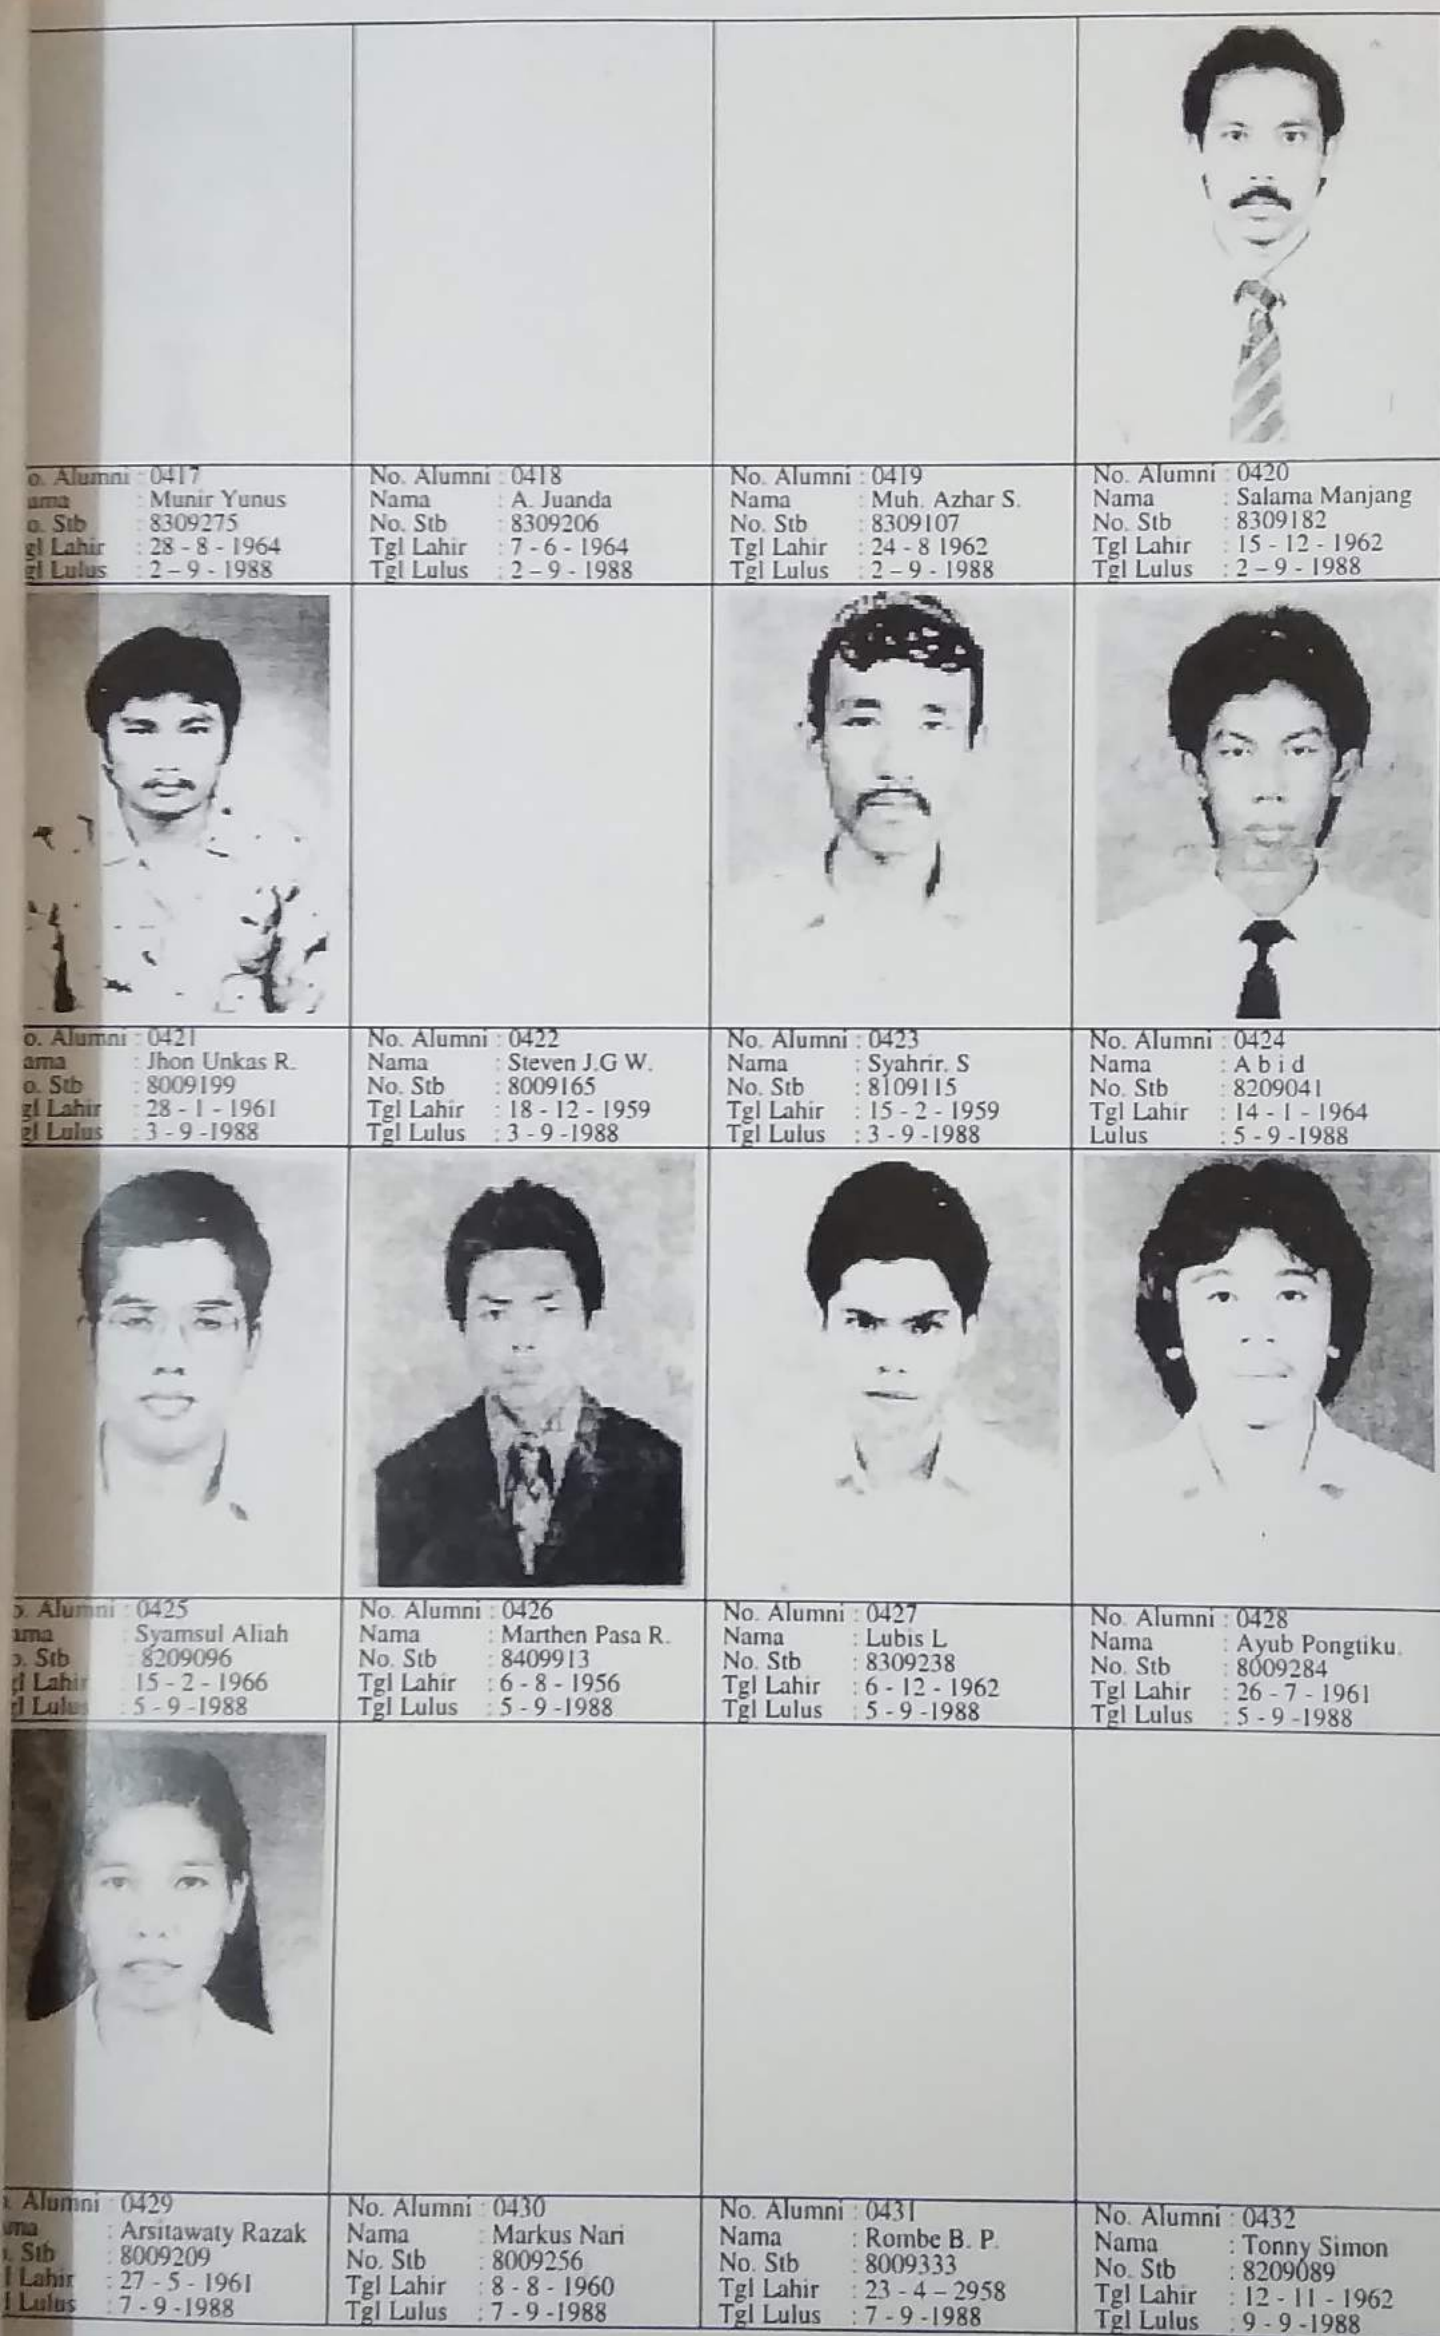 o. Alumni : 0417
ama : Munir Yunus
o. Stb : 8309275
gl Lahir : 28 - 8 - 1964
gl Lulus : 2 – 9 - 1988
No. Alumni : 0418
Nama : A. Juanda
No. Stb : 8309206
Tgl Lahir : 7 - 6 - 1964
Tgl Lulus : 2 – 9 - 1988
No. Alumni : 0419
Nama : Muh. Azhar S.
No. Stb : 8309107
Tgl Lahir : 24 - 8 1962
Tgl Lulus : 2 – 9 - 1988
No. Alumni : 0420
Nama : Salama Manjang
No. Stb : 8309182
Tgl Lahir : 15 - 12 - 1962
Tgl Lulus : 2 – 9 - 1988
o. Alumni : 0421
ama : Jhon Unkas R.
o. Stb : 8009199
gl Lahir : 28 - 1 - 1961
gl Lulus : 3 - 9 -1988
No. Alumni : 0422
Nama : Steven J.G W.
No. Stb : 8009165
Tgl Lahir : 18 - 12 - 1959
Tgl Lulus : 3 - 9 -1988
No. Alumni : 0423
Nama : Syahrir. S
No. Stb : 8109115
Tgl Lahir : 15 - 2 - 1959
Tgl Lulus : 3 - 9 -1988
No. Alumni : 0424
Nama : A b i d
No. Stb : 8209041
Tgl Lahir : 14 - 1 - 1964
Lulus : 5 - 9 -1988
o. Alumni : 0425
ama : Syamsul Aliah
o. Stb : 8209096
gl Lahir 15 - 2 - 1966
gl Lulus : 5 - 9 -1988
No. Alumni : 0426
Nama : Marthen Pasa R.
No. Stb : 8409913
Tgl Lahir : 6 - 8 - 1956
Tgl Lulus : 5 - 9 -1988
No. Alumni : 0427
Nama : Lubis L
No. Stb : 8309238
Tgl Lahir : 6 - 12 - 1962
Tgl Lulus : 5 - 9 -1988
No. Alumni : 0428
Nama : Ayub Pongtiku.
No. Stb : 8009284
Tgl Lahir : 26 - 7 - 1961
Tgl Lulus : 5 - 9 -1988
. Alumni : 0429
ma : Arsitawaty Razak
. Stb : 8009209
l Lahir : 27 - 5 - 1961
l Lulus : 7 - 9 -1988
No. Alumni : 0430
Nama : Markus Nari
No. Stb : 8009256
Tgl Lahir : 8 - 8 - 1960
Tgl Lulus : 7 - 9 -1988
No. Alumni : 0431
Nama : Rombe B. P.
No. Stb : 8009333
Tgl Lahir : 23 - 4 – 2958
Tgl Lulus : 7 - 9 -1988
No. Alumni : 0432
Nama : Tonny Simon
No. Stb : 8209089
Tgl Lahir : 12 - 11 - 1962
Tgl Lulus : 9 - 9 -1988